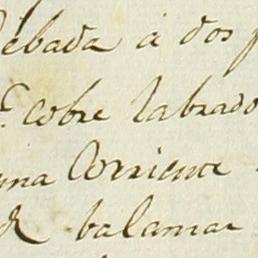 Cebada á dos p
cobre labrado
Corriente
balamar